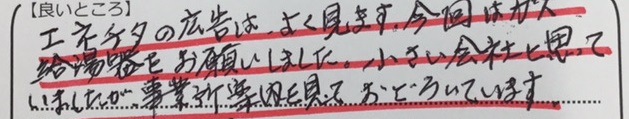 【良いところ】
エネチタの広告は、よく見ます。今回はガス
給湯器をお願いしました。小さい会社と思って
いましたが、事業所案内を見ておどろいています。